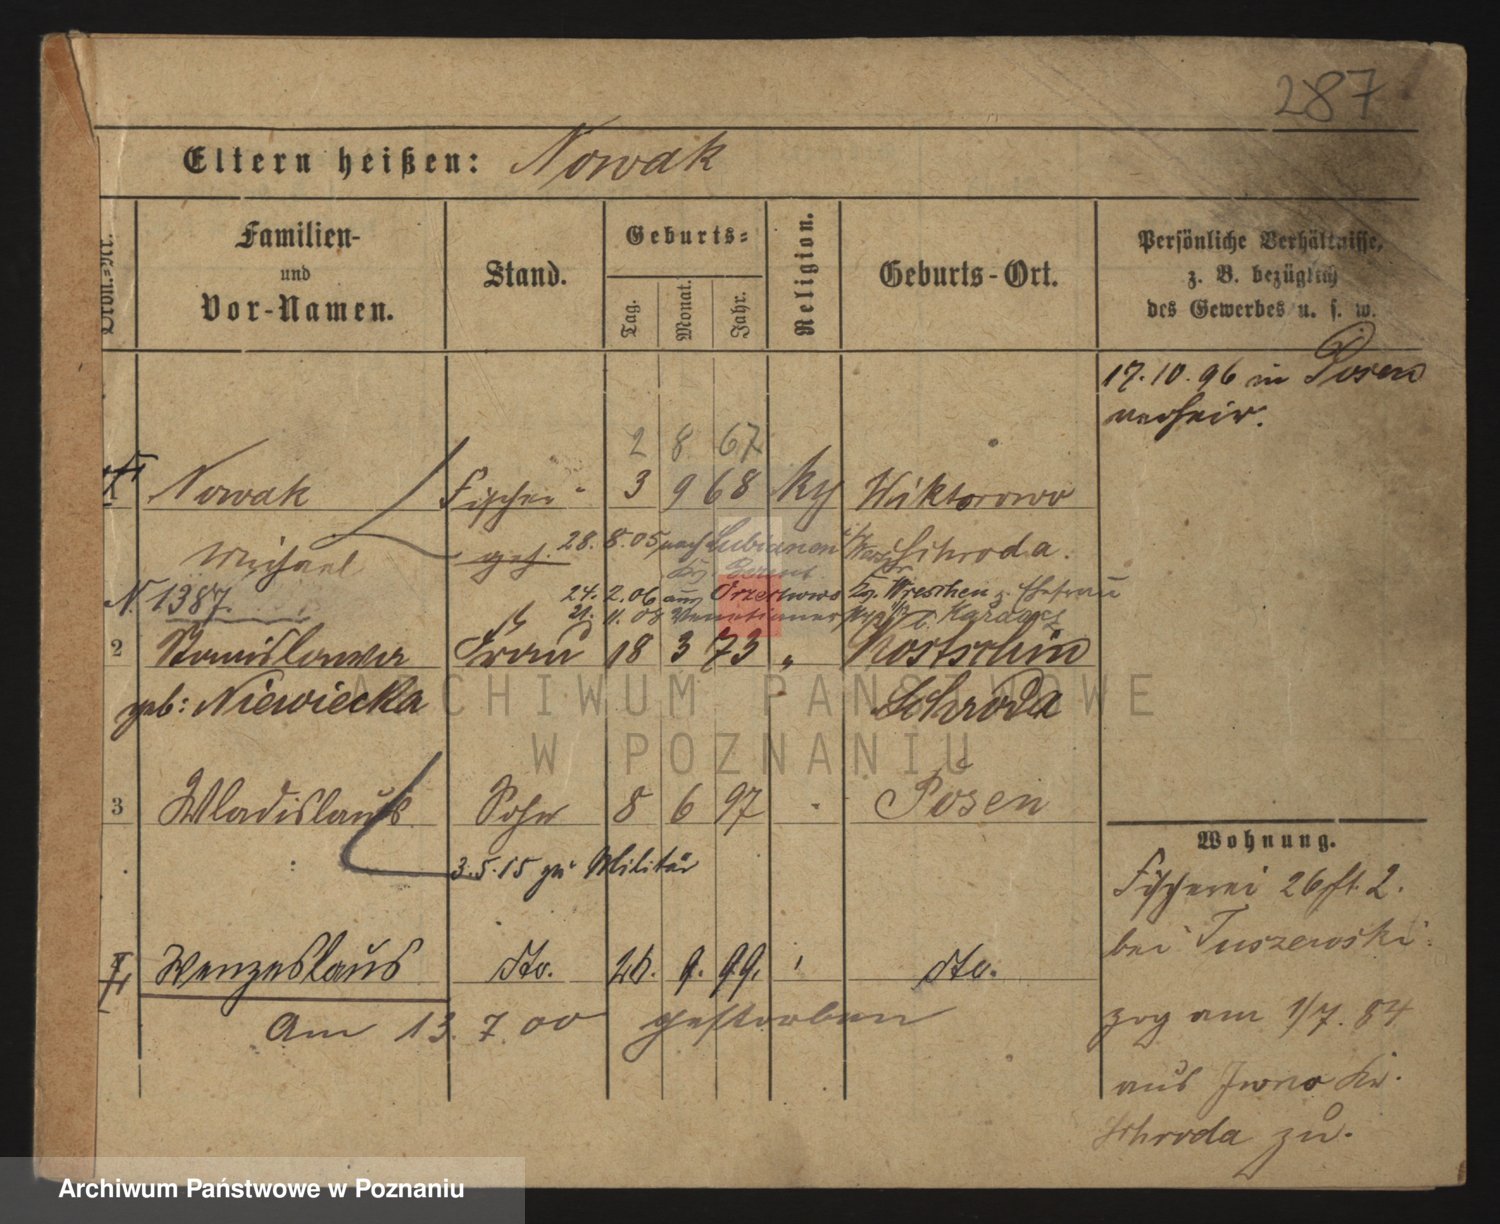 287
Eltern heißen: Nowak
Familien-
und
Vor-Namen.
Stand.
Geburts-
Tag.
Monat.
Jahr.
Religion.
Geburts-Ort.
Persönliche Verhältnisse,
z. B. bezüglich
des Gewerbes u. s. w.
17.10.96 in Posen
verheir.
2 8 67
Nowak Fischer 3 9 68 Wiktorowo
Michael gesch. 28. 8. 05 nach Lubianen Schroda.
Kr. Berent
N. 1387. 24. 2. 06 aus Orzechowo Kr. Wreschen z. Ehefrau
21. 11. 08 Venetianer
2 Stanislawa Frau 18 3 73 " Kostschin
geb: Niewiecka Schroda
3 Wladislaus Sohn 8 6 97 Posen
3.5.15 zu Militär
Wenzeslaus dto. 26. 9. 99. dto.
Am 13. 7. 00 gestorben
Wohnung.
Fischerei 26 II. 2.
bei Tuszewski.
zog am 1/7. 84
aus Iwno Kr.
Schroda zu.
ARCHIWUM PAŃSTWOWE
W POZNANIU
Archiwum Państwowe w Poznaniu